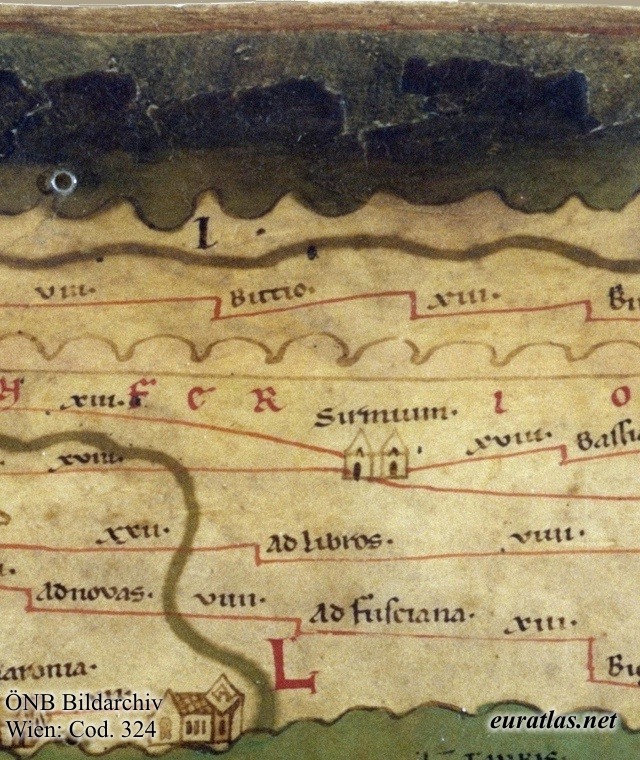 I
VIII·
Bittio·
XIII·
F E R I O
XIII·
Sirmium·
XVIII·
XVIII·
XXII·
ad libros·
VIIII·
ad novas·
VIIII·
ad Fusciana·
XIII·
L
ÖNB Bildarchiv
Wien: Cod. 324
euratlas.net